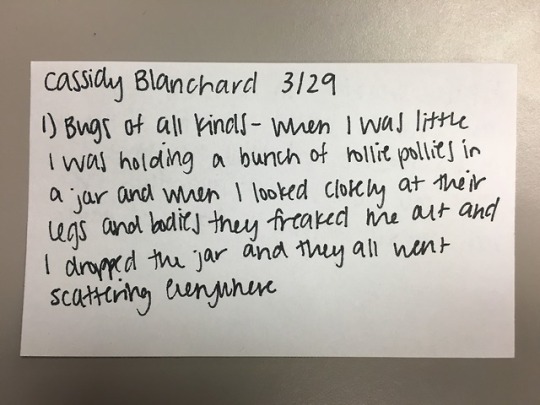 Cassidy Blanchard 3/29
1) Bugs of all kinds - when I was little
I was holding a bunch of rollie pollies in
a jar and when I looked closely at their
legs and bodies they freaked me out and
I dropped the jar and they all went
scattering everywhere